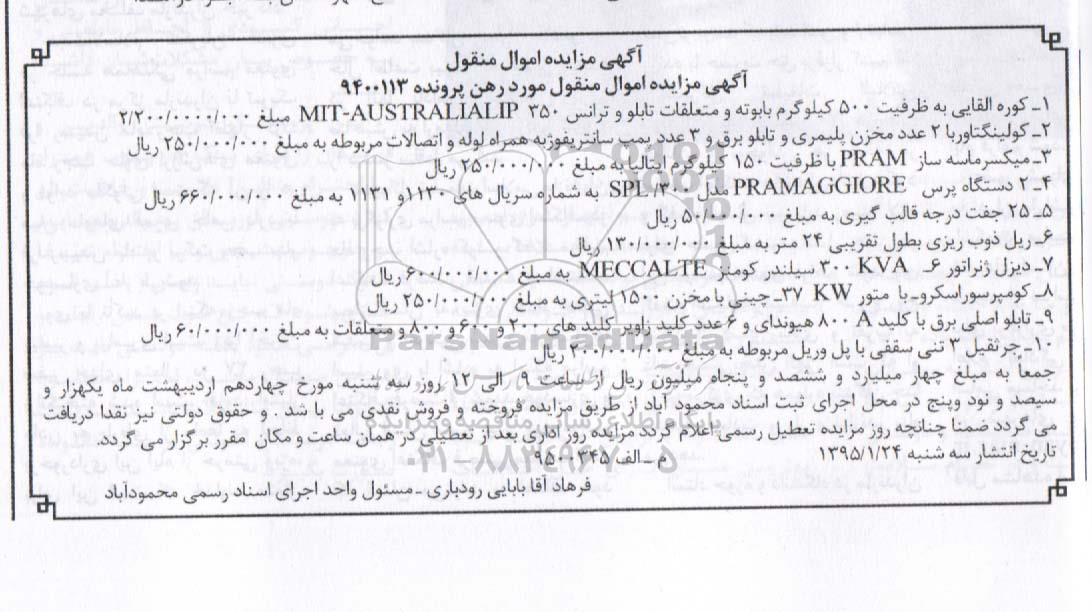 آگهی مزایده اموال منقول
آگهی مزایده اموال منقول مورد رهن پرونده ۹۴۰۰۱۱۳
۱_ کوره القایی به ظرفیت ۵۰۰ کیلوگرم بابوته و متعلقات تابلو و ترانس ۳۵۰ MIT-AUSTRALIALIP مبلغ ۲/۲۰۰/۰۰۰/۰۰۰
۲_ کولینگتاوربا ۲ عدد مخزن پلیمری و تابلو برق و ۳ عدد پمپ سانتریفوژبه همراه لوله و اتصالات مربوطه به مبلغ ۲۵۰/۰۰۰/۰۰۰ ریال
۳_ میکسرماسه ساز PRAM با ظرفیت ۱۵۰ کیلوگرم ایتالیا به مبلغ ۲۵۰/۰۰۰/۰۰۰ ریال
۴_ ۲ دستگاه پرس PRAMAGGIORE مدل SPL/۳۰۰ به شماره سریال های ۱۱۳۰ و ۱۱۳۱ به مبلغ ۶۶۰/۰۰۰/۰۰۰ ریال
۵_ ۲۵ جفت درجه قالب گیری به مبلغ ۵۰/۰۰۰/۰۰۰ ریال
۶_ ریل ذوب ریزی بطول تقریبی ۲۴ متر به مبلغ ۱۳۰/۰۰۰/۰۰۰ ریال
۷_ دیزل ژنراتور ۶ سیلندر کومینز MECCALTE به مبلغ ۶۰۰/۰۰۰/۰۰۰ ریال
۸_ کومپرسوراسکرو با متور KW ۳۷ چینی با مخزن ۱۵۰۰ لیتری به مبلغ ۲۵۰/۰۰۰/۰۰۰ ریال
۹_ تابلو اصلی برق با کلید A ۸۰۰ هیوندای و ۶ عدد کلید زاویر کلید های ۲۰۰ و ۶۰۰ و ۸۰۰ و متعلقات به مبلغ ۶۰/۰۰۰/۰۰۰ ریال
۱۰_ جرثقیل ۳ تنی سقفی با پل وریل مربوطه به مبلغ ۲۰۰/۰۰۰/۰۰۰ ریال
جمعا به مبلغ چهار میلیارد و ششصد و پنجاه میلیون ریال از ساعت ۹ الی ۱۲ روز سه شنبه مورخ چهاردهم اردیبهشت ماه یکهزار و
سیصد و نود وپنج در محل اجرای ثبت اسناد محمود آباد از طریق مزایده فروخته و فروش نقدی می با شد . و حقوق دولتی نیز نقدا دریافت
می گردد ضمنا چنانچه روز مزایده تعطیل رسمی اعلام گردد مزایده روز اداری بعد از تعطیلی در همان ساعت و مکان مقرر برگزار می گردد.
تاریخ انتشار سه شنبه ۱۳۹۵/۱/۲۴
م_الف ۹۵۰۰۳۴۵
فرهاد آقابابایی رودباری _مسئول واحد اجرای اسناد رسمی محمودآباد
ParsNamadData
پایگاه اطلاع رسانی مناقصه و مزایده